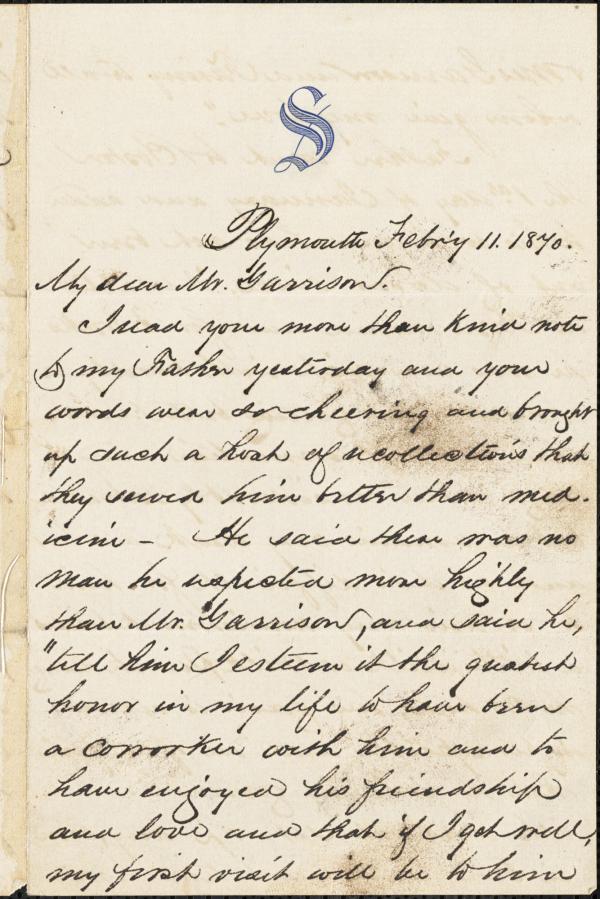 S
Plymouth Feb'y 11. 1870.
My dear Mr. Garrison.
I read your more than kind note
to my Father yesterday and your
words were so cheering and brought
up such a host of recollections that
they served him better than med-
icine - He said there was no
man he respected more highly
than Mr. Garrison, and said he,
"tell him I esteem it the greatest
honor in my life to have been
a coworker with him and to
have enjoyed his friendship
and love and that if I get well,
my first visit will be to him